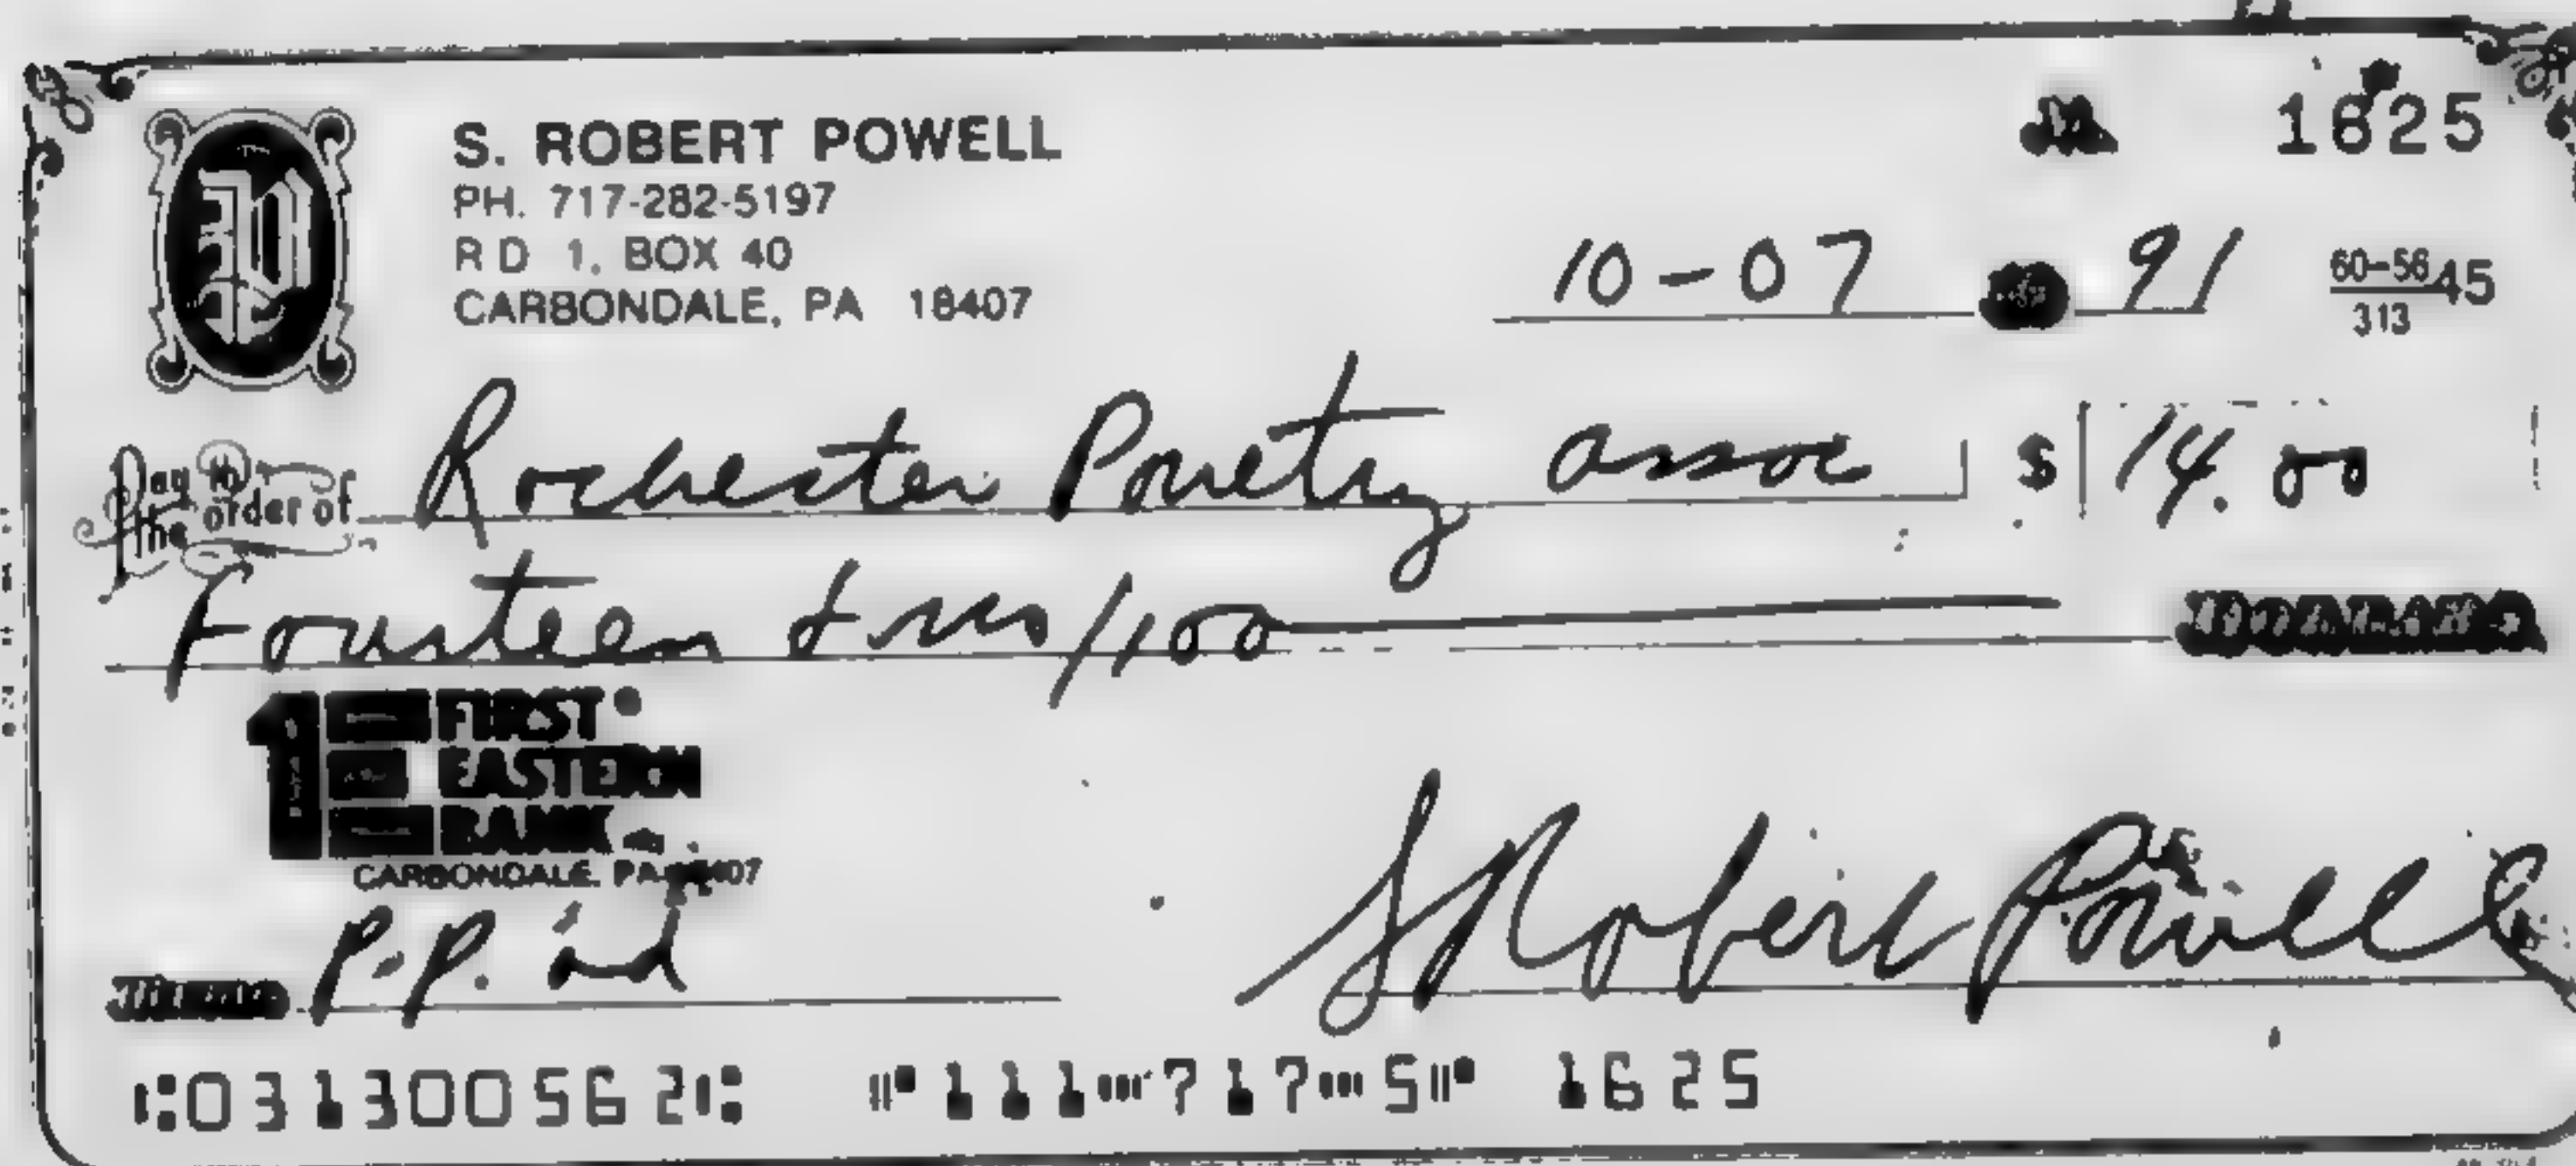 S. ROBERT POWELL
1625
PH. 717-282-5197
R D 1, BOX 40
CARBONDALE, PA 18407
10-07 91
60-5645
313
Pay to the order of Rochester Poetry assoc $ 14.00
Fourteen & no/100
FIRST
EASTERN
BANK
CARBONDALE, PA 18407
P.P. ad
S Robert Powell
⑆031300562⑆ ⑈111⑉717⑉5⑈ 1625